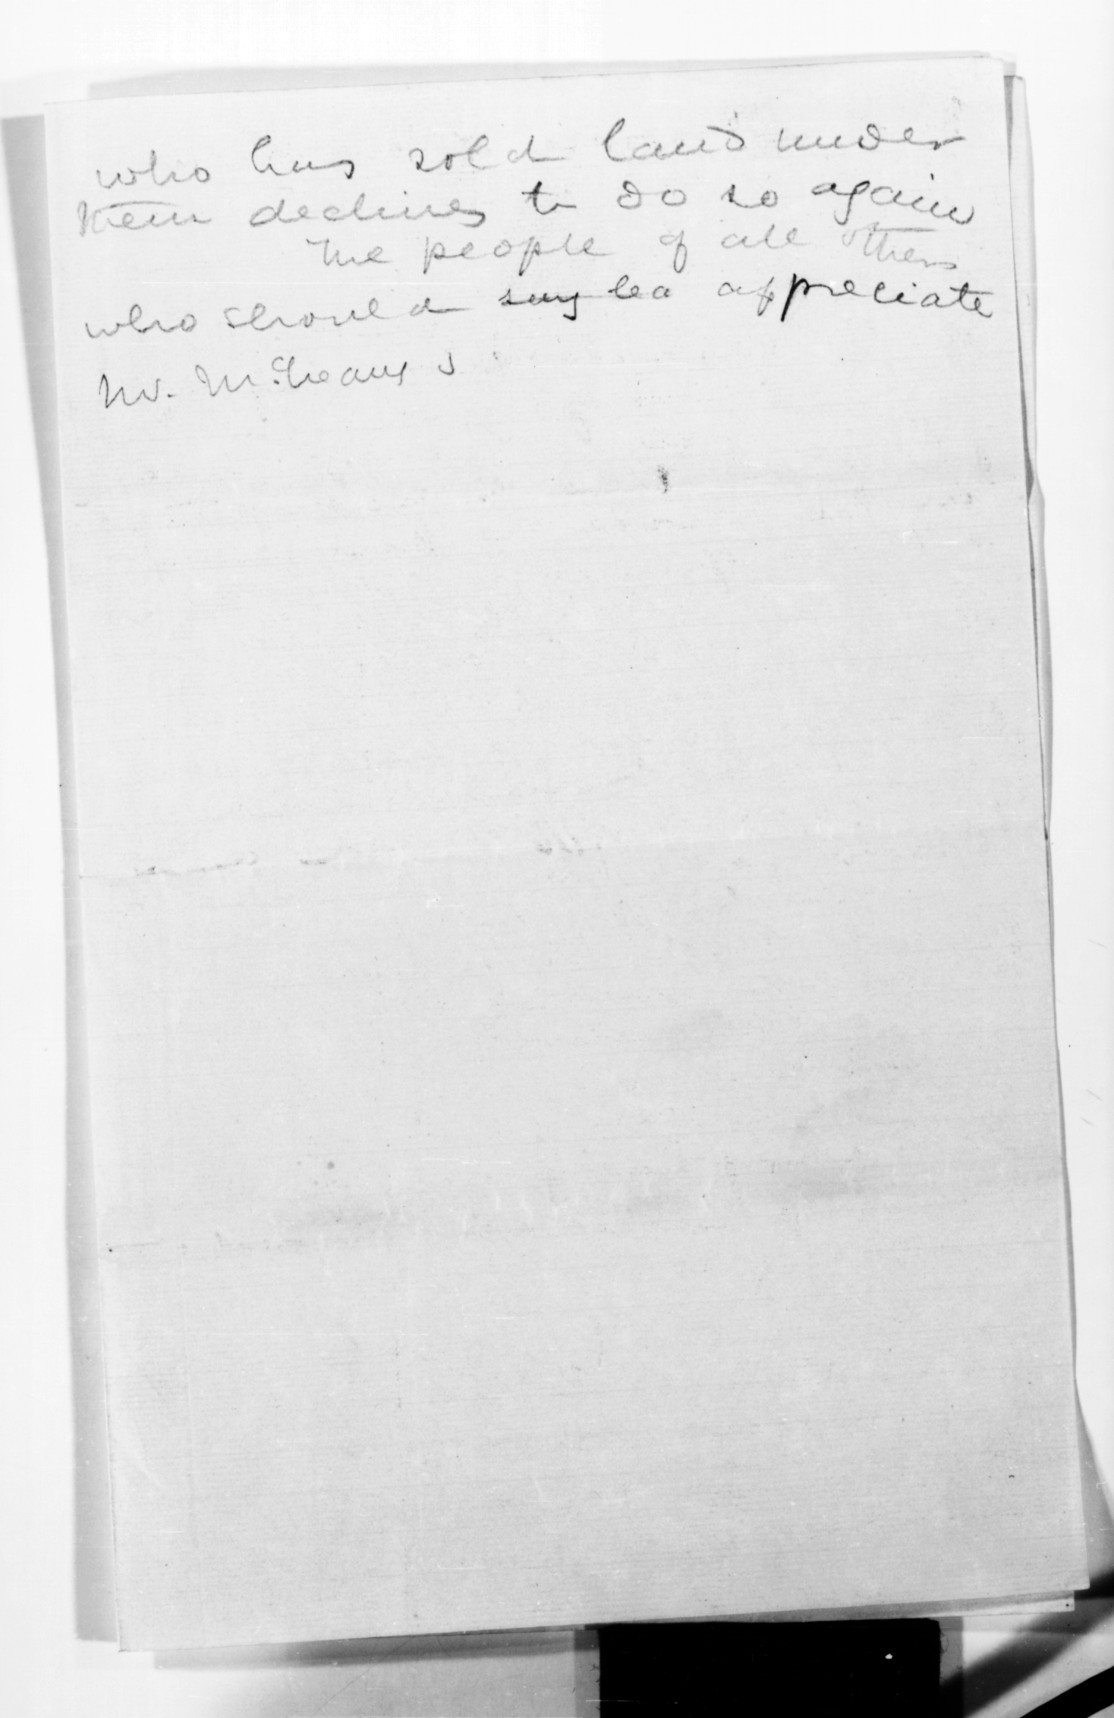 who has sold land under
them declines to do so again
The people of all others
who should appreciate
Mr. McLean's